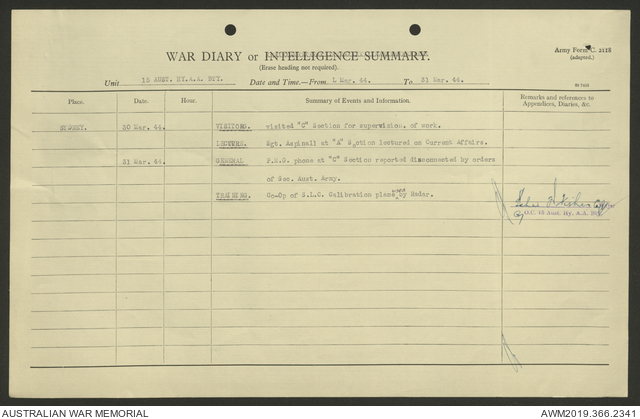 WAR DIARY or INTELLIGENCE SUMMARY.
(Erase heading not required).
Army Form C. 2118
(adapted.)
Unit 15 AUST. HY. A.A. BTY. Date and Time.—From 1 Mar. 44. To 31 Mar. 44.
Place. Date. Hour. Summary of Events and Information. Remarks and references to
Appendices, Diaries, &c.
SYDNEY. 30 Mar. 44. VISITORS. visited "C" Section for supervision. of work.
LECTURE. Sgt. Aspinall at "A" Section lectured on Current Affairs.
31 Mar. 44. GENERAL P.M.G. phone at "C" Section reported disconnected by orders
of Sec. Aust. Army.
TRAINING. Co-Op of S.L.C. Calibration plane used by Radar.
O.C. 15 Aust. Hy. A.A. Bty
AUSTRALIAN WAR MEMORIAL
AWM2019.366.2341